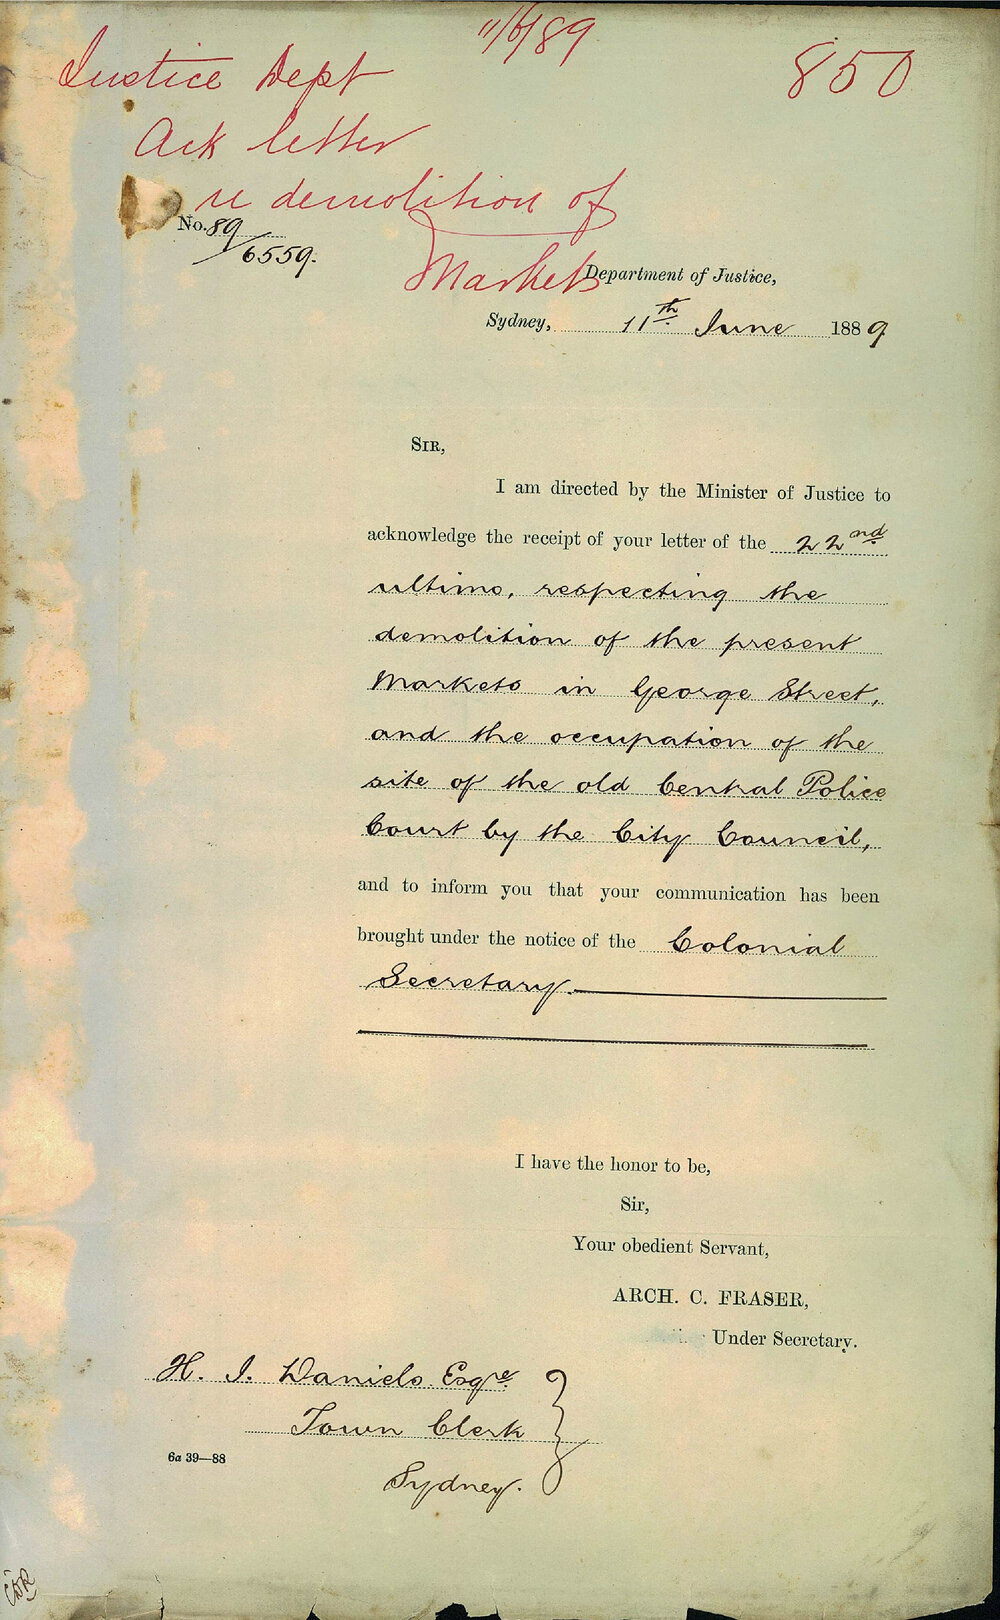 11/6/89
850
Justice Dept
Ack letter
re demolition of
Markets
No. 89/6559.
Department of Justice,
Sydney, 11th June 1889
SIR,
I am directed by the Minister of Justice to
acknowledge the receipt of your letter of the 22nd
ultimo, respecting the
demolition of the present
Markets in George Street,
and the occupation of the
site of the old Central Police
Court by the City Council,
and to inform you that your communication has been
brought under the notice of the Colonial
Secretary.
I have the honor to be,
Sir,
Your obedient Servant,
ARCH. C. FRASER,
Under Secretary.
H. J. Daniels Esqre
Town Clerk
6a 39—88
Sydney.